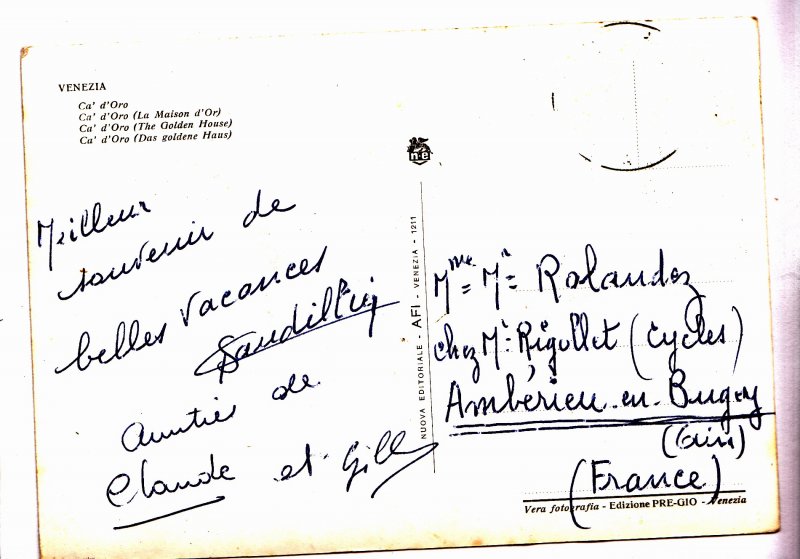 VENEZIA
Ca' d'Oro
Ca' d'Oro (La Maison d'Or)
Ca' d'Oro (The Golden House)
Ca' d'Oro (Das goldene Haus)
Meilleur
souvenir de
belles vacances
de
Claude et Gill
NUOVA EDITORIALE - AFI - VENEZIA - 1211
Mme Mr Rolandez
chez Mr Rigollet (Cycles)
Ambérieu-en-Bugey
(Ain)
(France)
Vera fotografia - Edizione PRE-GIO - Venezia